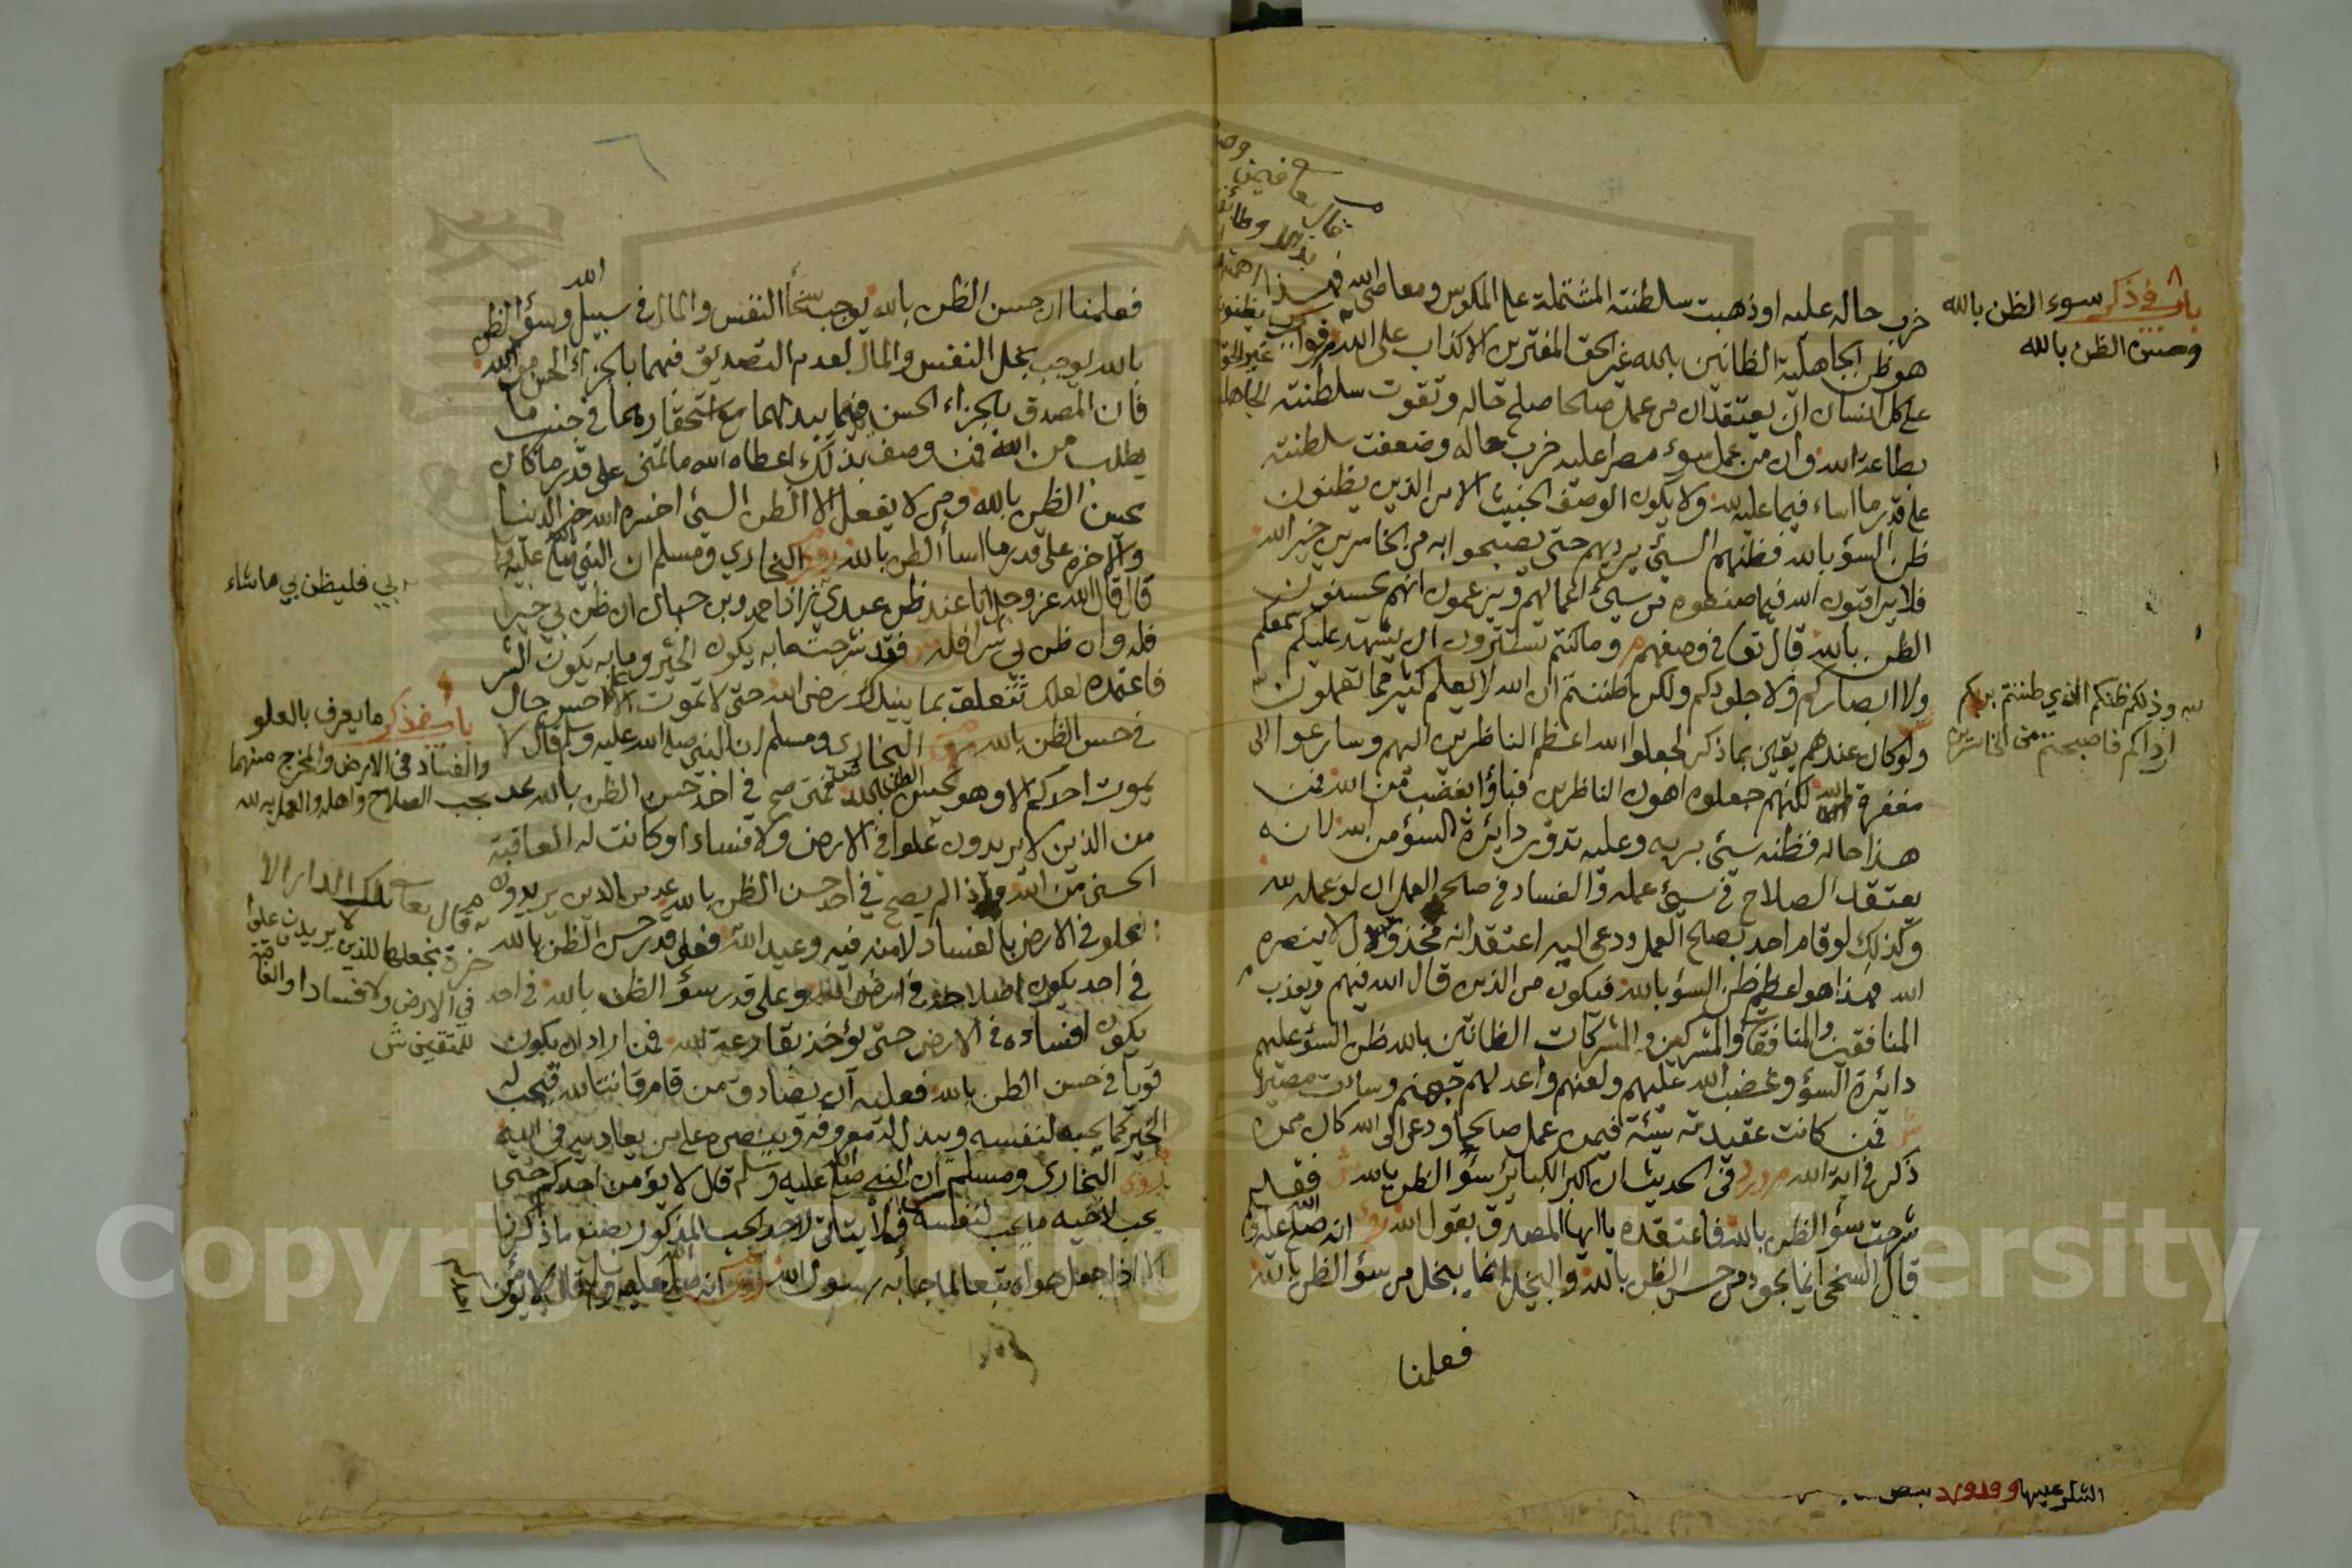 باب في ذكر سوء الظن بالله
وحسن الظن بالله
خرب حاله عليه او ذهبت سلطنته المشتملة على المكوس ومعاصي الله فهذا
هو ظن الجاهلية الظانين بالله غير الحق المفترين الاكذاب على الله
على كل انسان ان يعتقد ان من عمل صالحا صلح حاله وتقوت سلطنته
بطاعة الله وان من عمل سوء مصرا عليه خرب حاله وضعفت سلطنته
على قدر ما اساء فيما عليه لله ولا يكون الوصف الخبيث الا من الذين يظنون
ظن السؤ بالله فظنهم السيئ يرديهم حتى يصبحوا به من الخاسرين خير الله
فلا يراقبون الله فيما صنعوه من سيئ اعمالهم ويزعمون انهم يحسنون
الظن بالله قال تعا في وصفهم وما كنتم تستترون ان يشهد عليكم سمعكم
ولا ابصاركم ولا جلودكم ولكن ظننتم ان الله لا يعلم كثيرا مما تعملون
وذلكم ظنكم الذي ظننتم بربكم
ارداكم فاصبحتم من الخاسرين
ولو كان عندهم يقين بما ذكر لجعلوا الله اعظم الناظرين اليهم وسارعوا الى
مغفرة الله لكنهم جعلوه اهون الناظرين فباؤا بغضب من الله فمن
هذا حاله فظنه سيئ بربه وعليه تدور دايرة السؤ من الله لانه
يعتقد الصلاح في سيئ عمله والفساد في صالح العمل ان لو عمله لله
وكذلك لو قام احد بصالح العمل ودعى اليه اعتقد انه مخذول لا ينصره
الله فهذا هو اعظم ظن السؤ بالله فيكون من الذين قال الله فيهم ويعذب
المنافقين والمنافقات والمشركين والمشركات الظانين بالله ظن السؤ عليهم
دائرة السؤ وغضب الله عليهم ولعنهم واعد لهم جهنم وساءت مصيرا
فمن كانت عقيدته سيئة فيمن عمل صالحا ودعى الى الله كان ممن
ذكر في اية الله ورد في الحديث ان اكبر الكباير سؤ الظن بالله فقد
شرحت سؤ الظن بالله فاعتقده يا ايها المصدق بقول الله روي انه صلى الله عليه
قال السخي انما يجود من حسن الظن بالله والبخيل انما يبخل من سؤ الظن بالله
فعلمنا
فعلمنا ان حسن الظن بالله يوجب سخأ النفس والمال في سبيل الله وسؤ الظن
بالله يوجب بخل النفس والمال لعدم التصديق فيهما بالجزاء الحسن من الله
فان المصدق بالجزاء الحسن فيهما يبذلهما مع استحقارهما في جنب ما
يطلب من الله فمن وصف بذلك اعطاه الله ما تمنى على قدر ما كان
يحسن الظن بالله ومن لا يفعل الا الظن السيئ اخسره الله خير الدنيا
والاخره على قدر ما اسأ الظن بالله روى البخاري ومسلم ان النبي صلى الله عليه
قال قال الله عز وجل انا عند ظن عبدي زاد احمد وبن حبان ان ظن بي خيرا
بي فليظن بي ما شاء
فله وان ظن بي شرا فله فقد شرحت ما به يكون الخير وما به يكون الشر
فاعتمده لعلك تتعلق بما ينيلك رضى الله حتى لا تموت الا احسن حال
في حسن الظن بالله روى البخاري ومسلم ان النبي صلى الله عليه وسلم قال لا
يموت احدكم الا وهو يحسن الظن بالله فمتى صح في احد حسن الظن بالله عد
من الذين لا يريدون علوا في الارض ولا فسادا وكانت له العاقبة
الحسنى من الله واذا لم يصح في احد حسن الظن بالله عد من الذين يريدون
العلو في الارض بالفساد لامنه فيه وعيد الله فعلى قدر حسن الظن بالله
في احد يكون اصلاحه في ارض الله وعلى قدر سؤ الظن بالله في احد
يكون افساده في الارض حتى يؤخذ بقارعة لله فمن اراد ان يكون
قويا في حسن الظن بالله فعليه ان يصادق من قام قانتا لله فيحب له
الخير كما يحبه لنفسه ويبذل له معروفه وينصره على من يعاديه في الله
روى البخاري ومسلم ان النبي صلى الله عليه وسلم قال لا يؤمن احدكم حتى
يحب لاخيه ما يحب لنفسه فلا يتاتى لاحد الحب المذكور بصنع ما ذكرنا
الا اذا جعل هواه تبعا لما جأ به رسول الله روى انه صلى الله عليه وسلم قال لا يؤمن
باب في ذكر ما يعرف بالعلو
والفساد في الارض والمخرج منهما
بحب الصلاح واهله والعمل به لله
قال تعا تلك الدار الا
خرة نجعلها للذين لا يريدون علوا
في الارض ولا فسادا والعاقبة
للمتقين